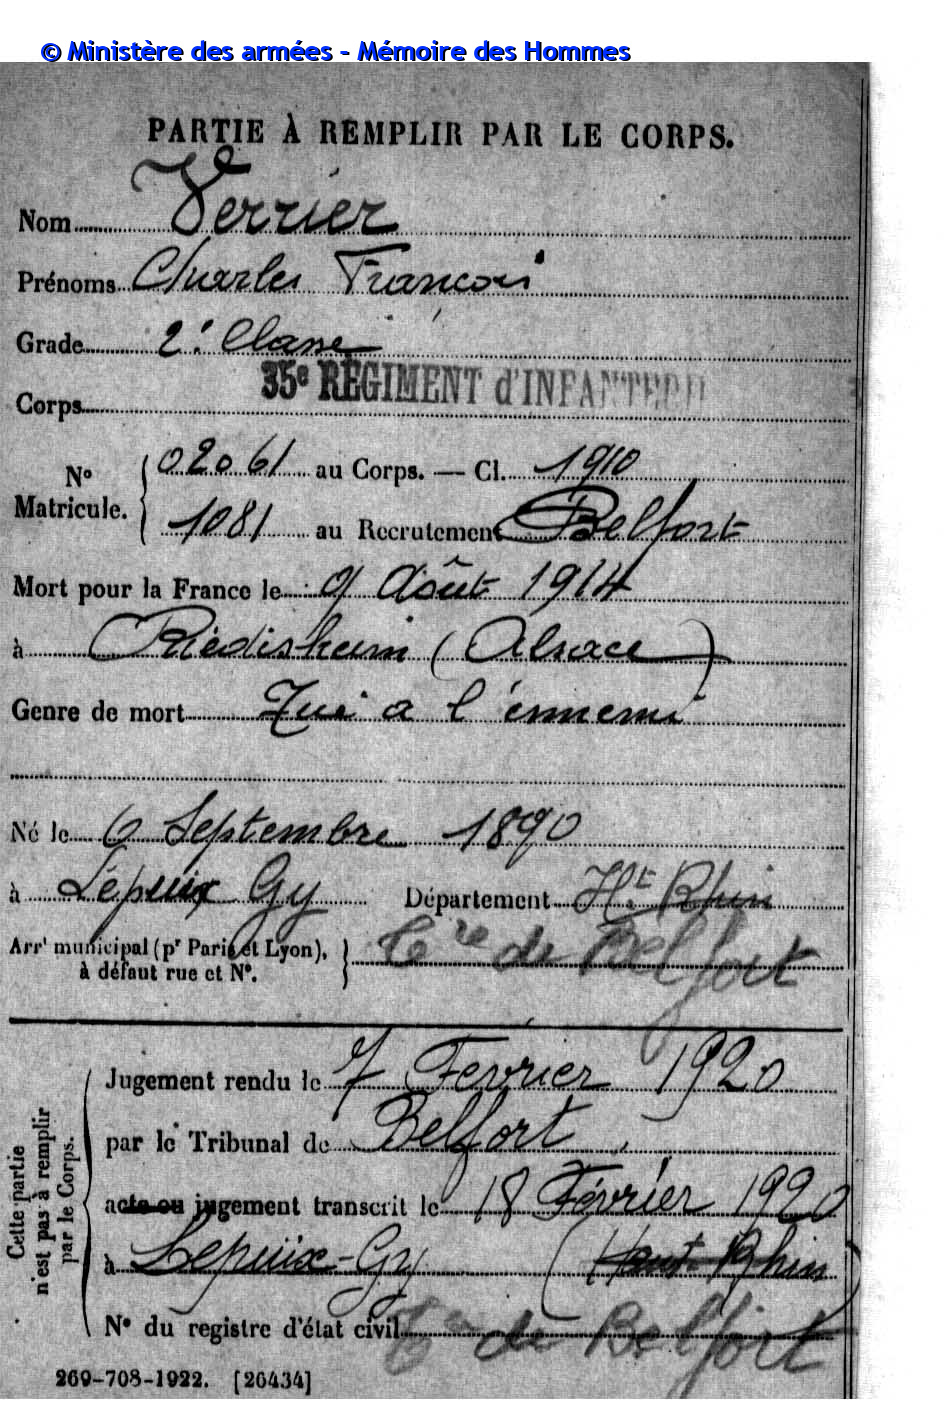 © Ministère des armées - Mémoire des Hommes
PARTIE À REMPLIR PAR LE CORPS.
Nom Verrier
Prénoms Charles François
Grade 2e Classe
Corps 35e RÉGIMENT d'INFANTERIE
No Matricule. 02061 au Corps. — Cl. 1910
1081 au Recrutement Belfort
Mort pour la France le 9 Août 1914
à Riedisheim (Alsace)
Genre de mort Tué a l'ennemi
Né le 6 Septembre 1890
à Lepuix Gy Département Ht Rhin
Arrt municipal (pr Paris et Lyon), à défaut rue et No. Tre de Belfort
Cette partie n'est pas à remplir par le Corps.
Jugement rendu le 7 Février 1920
par le Tribunal de Belfort
acte ou jugement transcrit le 18 Février 1920
à Lepuix-Gy (Haut-Rhin)
No du registre d'état civil Tre de Belfort
269-708-1922. [26434]